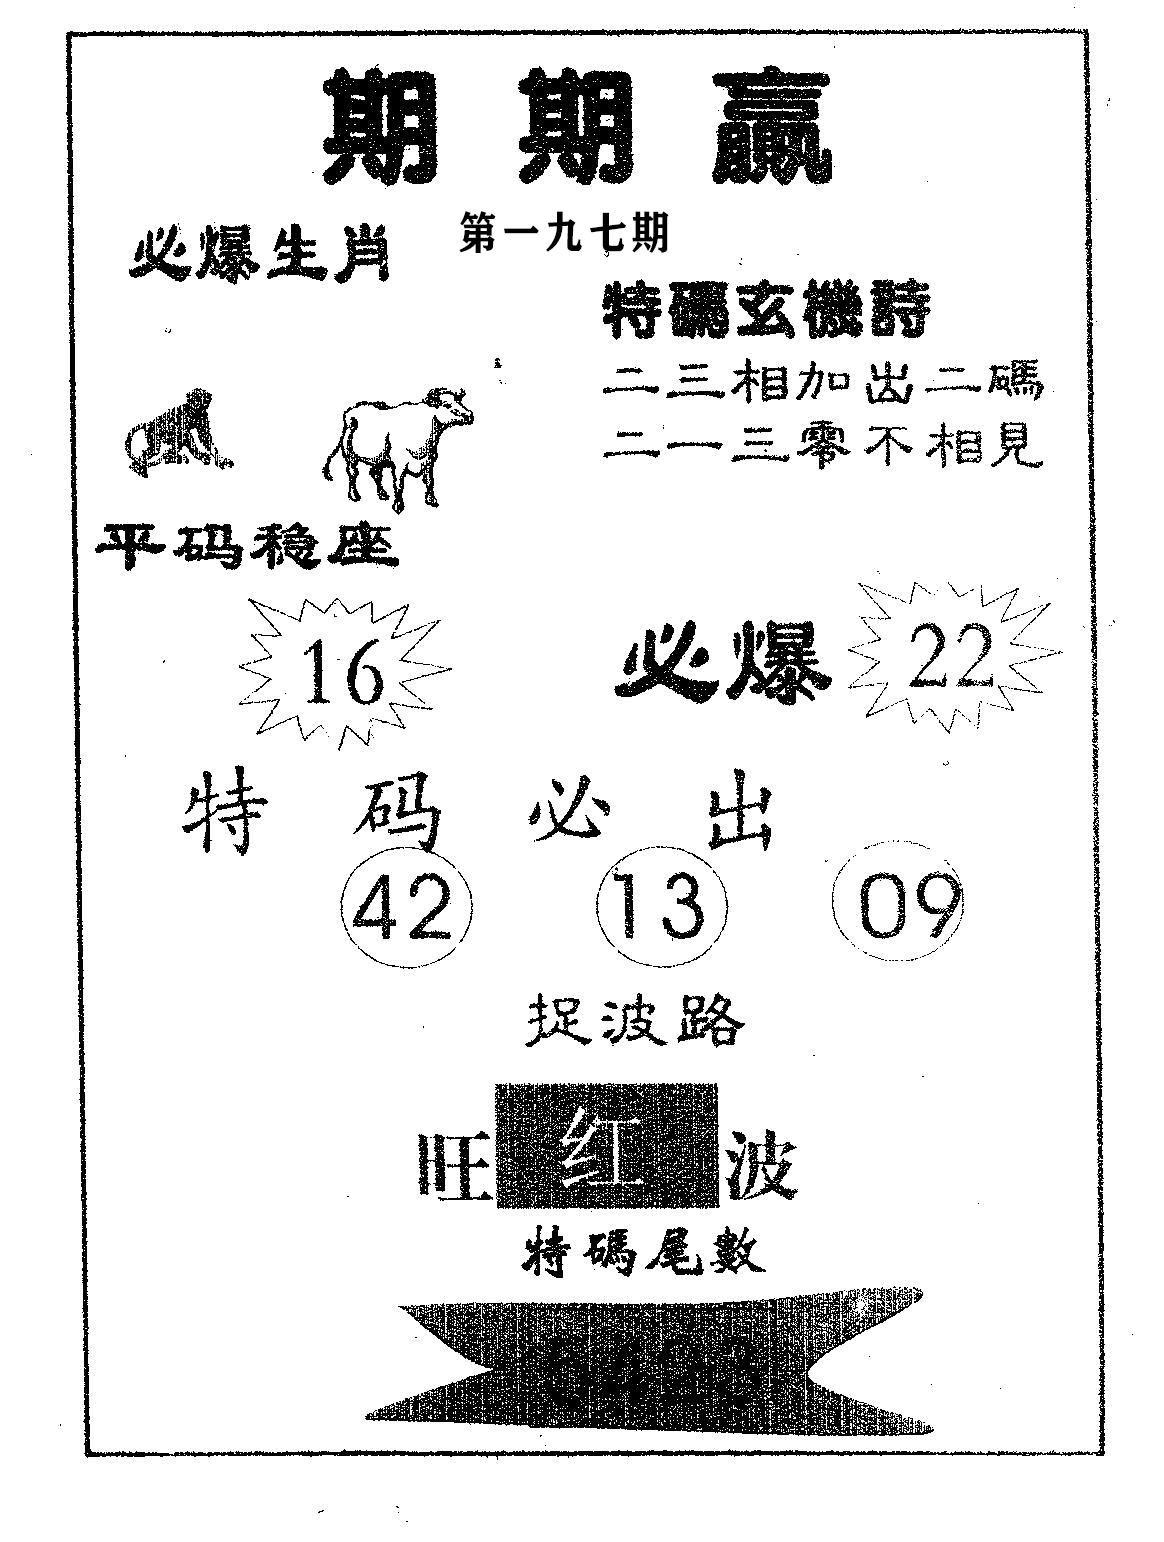 期期赢
第一九七期
必爆生肖
特碼玄機詩
二三相加出二碼
二一三零不相見
平码稳座
16
必爆 22
特码必出
42 13 09
捉波路
旺红波
特碼尾數